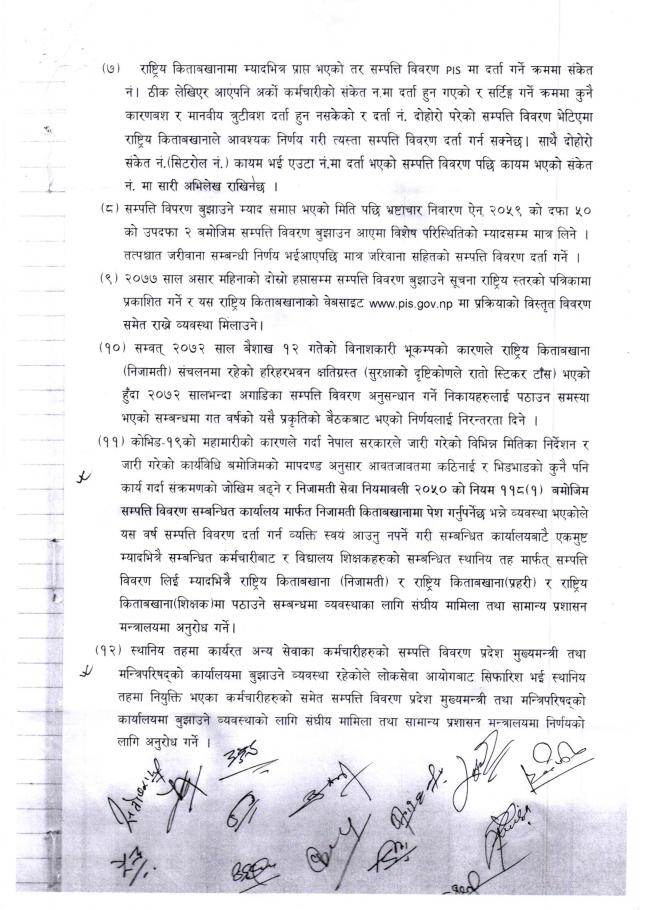 (७) राष्ट्रिय किताबखानामा म्यादभित्र प्राप्त भएको तर सम्पत्ति विवरण PIS मा दर्ता गर्ने क्रममा संकेत
नं। ठीक लेखिएर आएपनि अर्को कर्मचारीको संकेत न.मा दर्ता हुन गएको र सर्टिङ्ग गर्ने क्रममा कुनै
कारणबश र मानवीय त्रुटीवश दर्ता हुन नसकेको र दर्ता नं. दोहोरो परेको सम्पत्ति विवरण भेटिएमा
राष्ट्रिय किताबखानाले आवश्यक निर्णय गरी त्यस्ता सम्पत्ति विवरण दर्ता गर्न सक्नेछ। साथै दोहोरो
संकेत नं.(सिटरोल नं.) कायम भई एउटा नं.मा दर्ता भएको सम्पत्ति विवरण पछि कायम भएको संकेत
नं. मा सारी अभिलेख राखिनेछ ।
(८) सम्पत्ति विपरण बुझाउने म्याद समाप्त भएको मिति पछि भ्रष्टाचार निवारण ऐन् २०५९ को दफा ५०
को उपदफा २ बमोजिम सम्पत्ति विवरण बुझाउन आएमा विशेष परिस्थितिको म्यादसम्म मात्र लिने ।
तत्पश्चात जरीवाना सम्बन्धी निर्णय भईआएपछि मात्र जरिवाना सहितको सम्पत्ति विवरण दर्ता गर्ने ।
(९) २०७७ साल असार महिनाको दोस्रो हप्तासम्म सम्पत्ति विवरण बुझाउने सूचना राष्ट्रिय स्तरको पत्रिकामा
प्रकाशित गर्ने र यस राष्ट्रिय किताबखानाको वेबसाइट www.pis.gov.np मा प्रक्रियाको विस्तृत विवरण
समेत राख्ने व्यवस्था मिलाउने।
(१०) सम्वत् २०७२ साल बैशाख १२ गतेको विनाशकारी भूकम्पको कारणले राष्ट्रिय किताबखाना
(निजामती) संचलनमा रहेको हरिहरभवन क्षतिग्रस्त (सुरक्षाको दृष्टिकोणले रातो स्टिकर टाँस) भएको
हुँदा २०७२ सालभन्दा अगाडिका सम्पत्ति विवरण अनुसन्धान गर्ने निकायहरुलाई पठाउन समस्या
भएको सम्बन्धमा गत वर्षको यसै प्रकृतिको बैठकबाट भएको निर्णयलाई निरन्तरता दिने ।
(११) कोभिड-१९को महामारीको कारणले गर्दा नेपाल सरकारले जारी गरेको विभिन्न मितिका निर्देशन र
जारी गरेको कार्यविधि बमोजिमको मापदण्ड अनुसार आवतजावतमा कठिनाई र भिडभाडको कुनै पनि
कार्य गर्दा संक्रमणको जोखिम बढ्ने र निजामती सेवा नियमावली २०५० को नियम ११८(१) बमोजिम
सम्पत्ति विवरण सम्बन्धित कार्यालय मार्फत निजामती किताबखानामा पेश गर्नुपर्नेछ भन्ने व्यवस्था भएकोले
यस वर्ष सम्पत्ति विवरण दर्ता गर्न व्यक्ति स्वयं आउनु नपर्ने गरी सम्बन्धित कार्यालयबाटै एकमुष्ट
म्यादभित्रै सम्बन्धित कर्मचारीबाट र विद्यालय शिक्षकहरुको सम्बन्धित स्थानिय तह मार्फत् सम्पत्ति
विवरण लिई म्यादभित्रै राष्ट्रिय किताबखाना (निजामती) र राष्ट्रिय किताबखाना(प्रहरी) र राष्ट्रिय
किताबखाना(शिक्षक)मा पठाउने सम्बन्धमा व्यवस्थाका लागि संघीय मामिला तथा सामान्य प्रशासन
मन्त्रालयमा अनुरोध गर्ने।
(१२) स्थानिय तहमा कार्यरत अन्य सेवाका कर्मचारीहरुको सम्पत्ति विवरण प्रदेश मुख्यमन्त्री तथा
मन्त्रिपरिषद्को कार्यालयमा बुझाउने व्यवस्था रहेकोले लोकसेवा आयोगबाट सिफारिश भई स्थानिय
तहमा नियुक्ति भएका कर्मचारीहरुको समेत सम्पत्ति विवरण प्रदेश मुख्यमन्त्री तथा मन्त्रिपरिषद्को
कार्यालयमा बुझाउने व्यवस्थाको लागि संघीय मामिला तथा सामान्य प्रशासन मन्त्रालयमा निर्णयको
लागि अनुरोध गर्ने ।